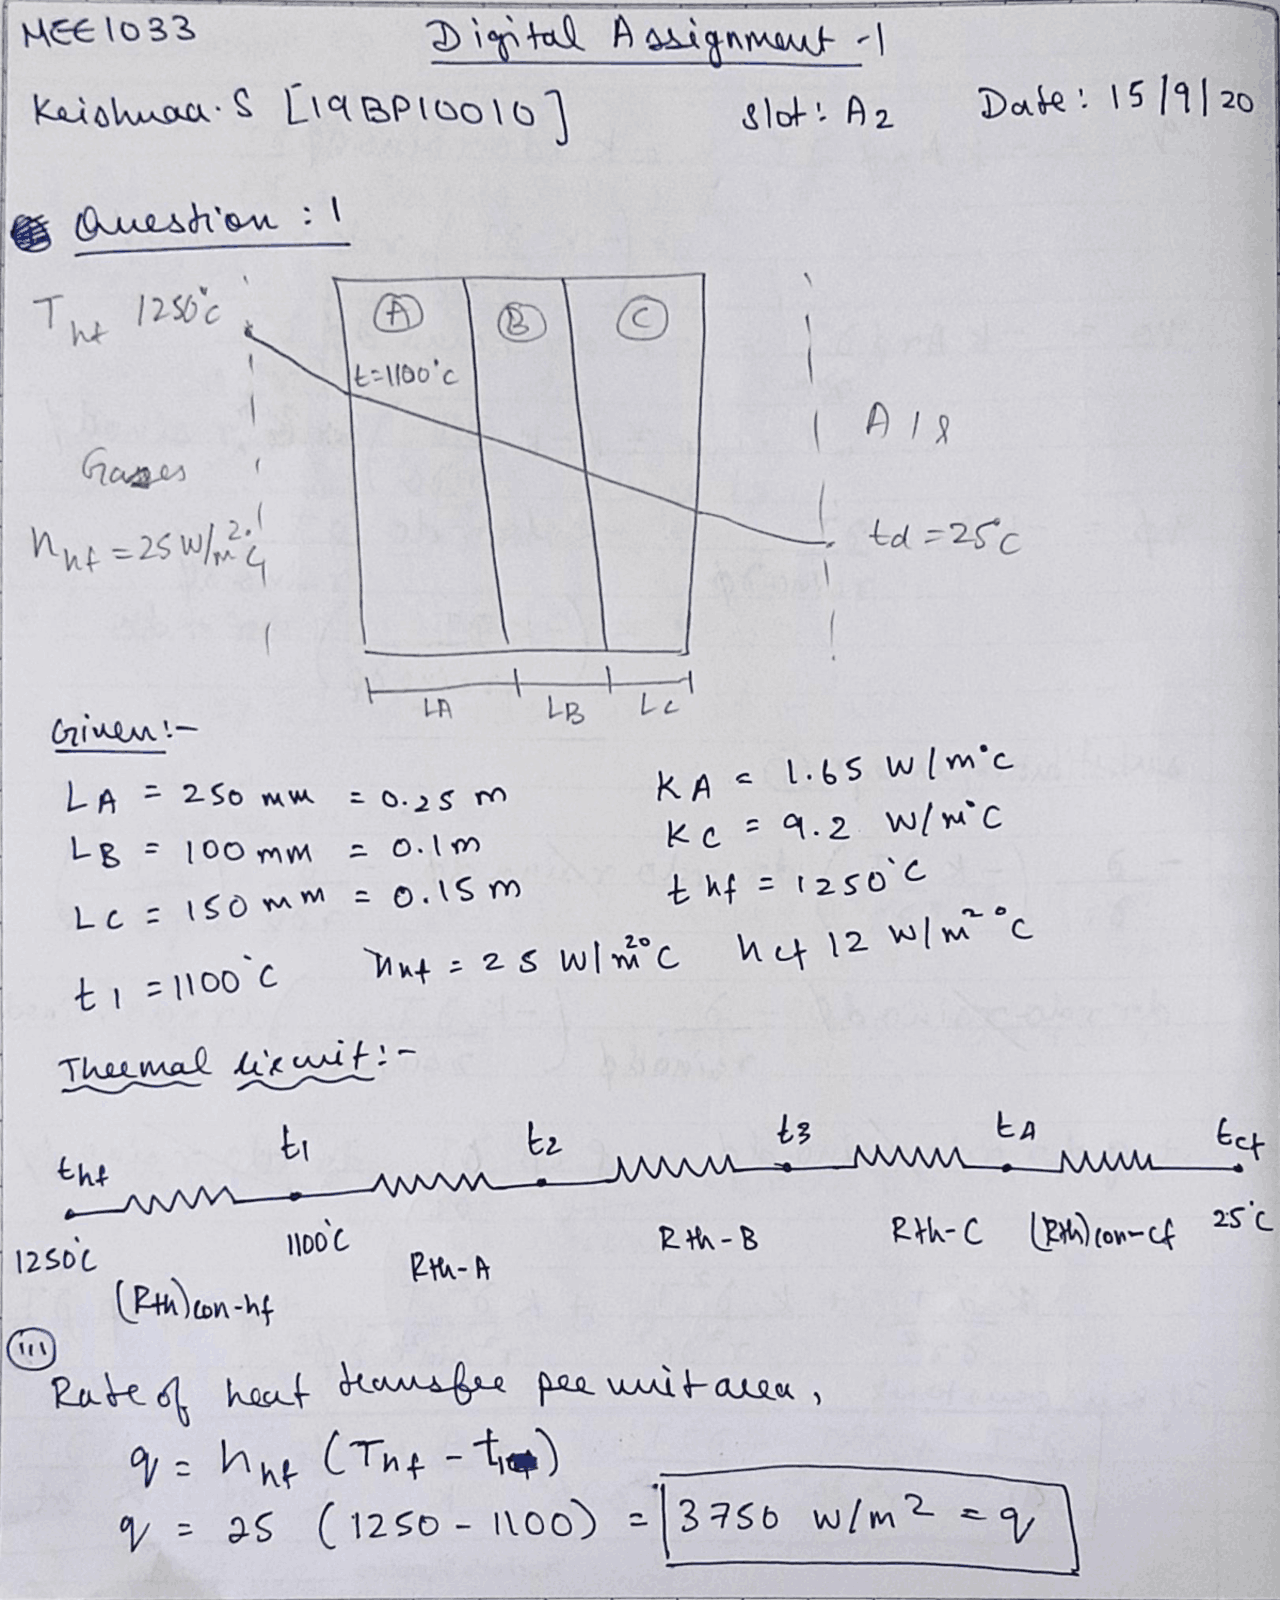 MEE1033 Digital Assignment -1
Keishnaa.S [19BP10010] Slot: A2 Date: 15/9/20
Question : 1
Thf 1250°C
A B C
t=1100°C
AIR
Gases
hhf = 25 W/m².°C
td = 25°C
LA LB LC
Given:-
LA = 250 mm = 0.25 m KA = 1.65 W/m°C
LB = 100 mm = 0.1m KC = 9.2 W/m°C
LC = 150 mm = 0.15 m thf = 1250°C
t1 = 1100°C hhf = 25 W/m²°C hcf 12 W/m²°C
Thermal circuit:-
thf t1 t2 t3 t4 tcf
1250°C 1100°C Rth-A Rth-B Rth-C (Rth)con-cf 25°C
(Rth)con-hf
(iii)
Rate of heat transfer per unit area,
q = hhf (Thf - t1)
q = 25 (1250 - 1100) = 3750 W/m² = q